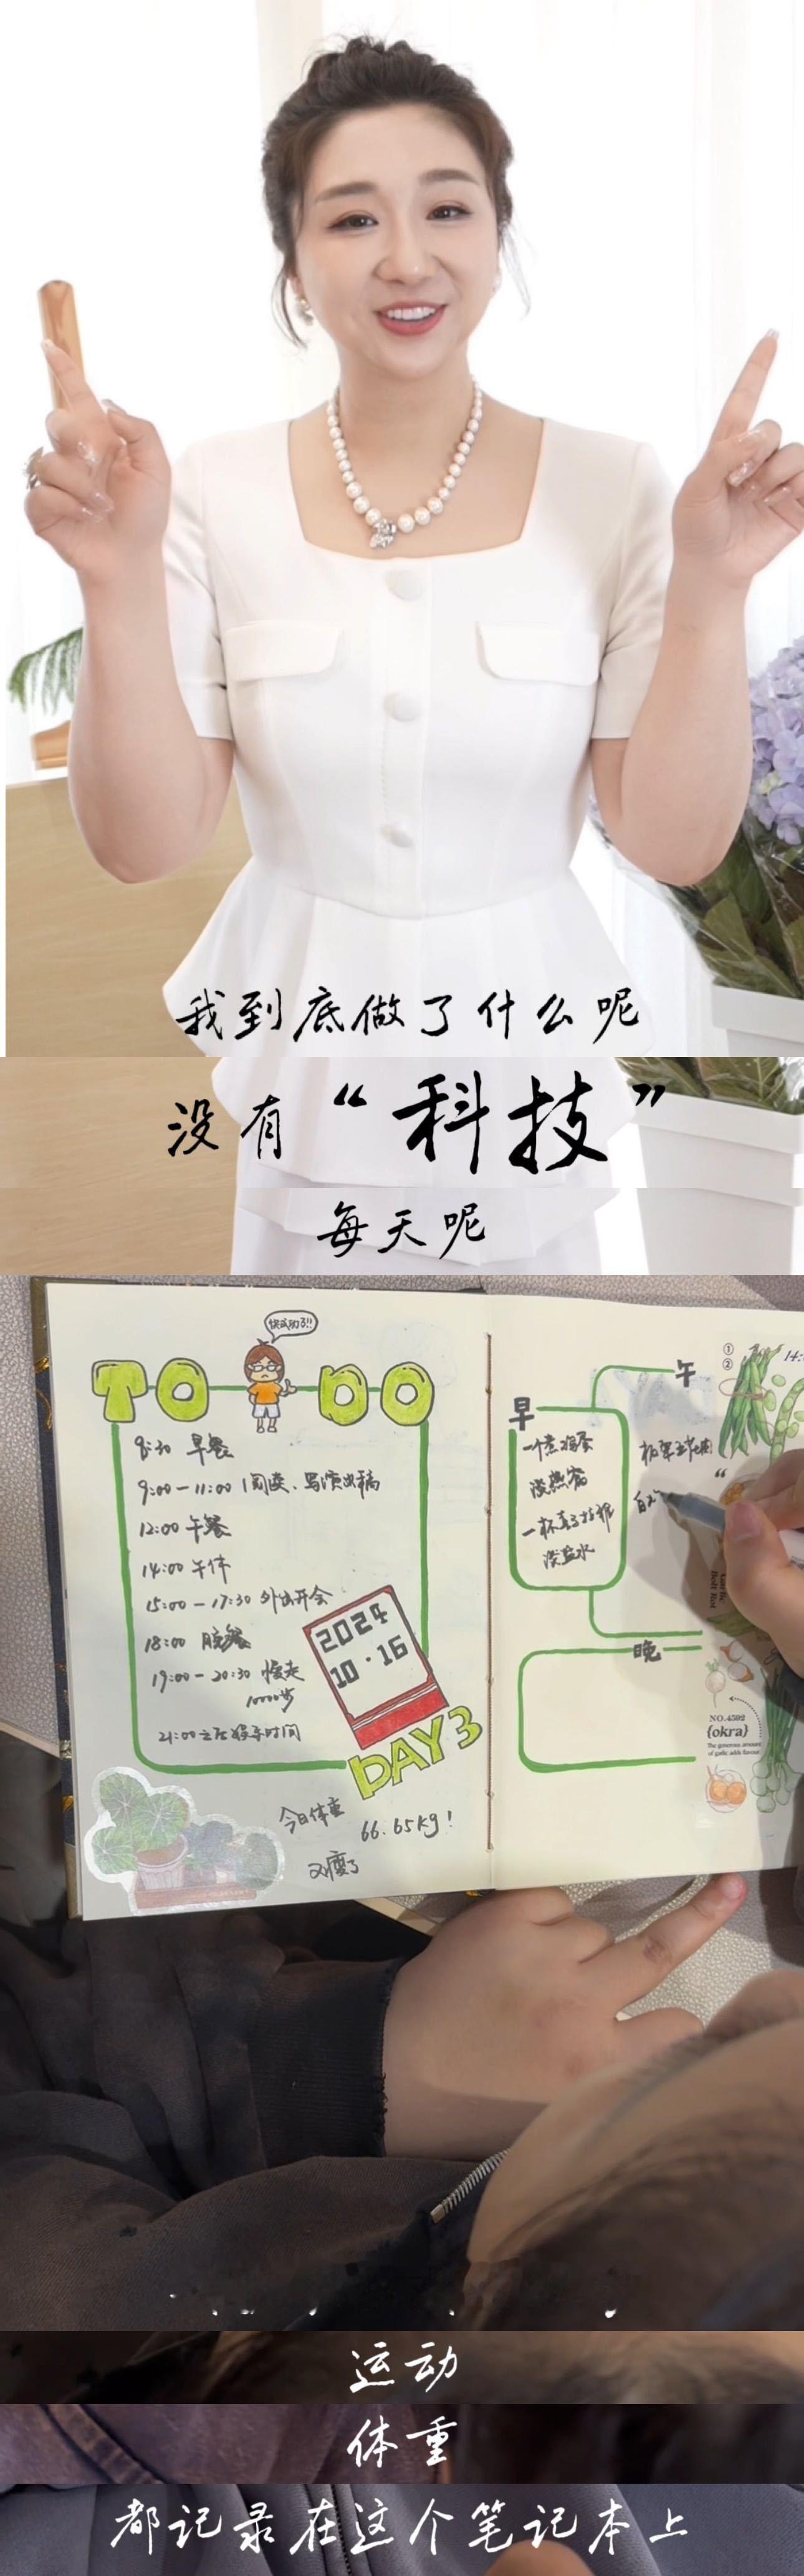 我到底做了什么呢
没有“科技”
每天呢
快成功了!!
TO DO
8:30 早餐
9:00-11:00 阅读、写演出稿
12:00 午餐
14:00 午休
15:00-17:30 外出开会
18:00 晚餐
19:00-20:30 慢走
10000步
21:00之后娱乐时间
2024
10·16
DAY 3
今日体重 66.65kg!
又瘦了
早
一个煮鸡蛋
淡盐水
午
①
②
14:
晚
NO.4592
{okra}
The generous amount
of garlic adds flavour
运动
体重
都记录在这个笔记本上